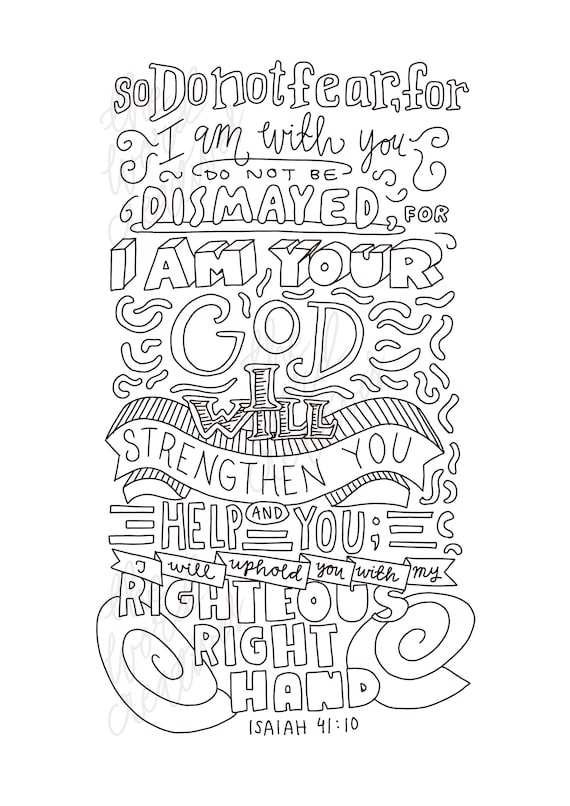 so Do not fear, for
I am with you
DO NOT BE
DISMAYED, FOR
I AM YOUR
GOD
I
WILL
STRENGTHEN YOU
HELP AND YOU;
I will uphold you with my
RIGHTEOUS
RIGHT
HAND
ISAIAH 41:10